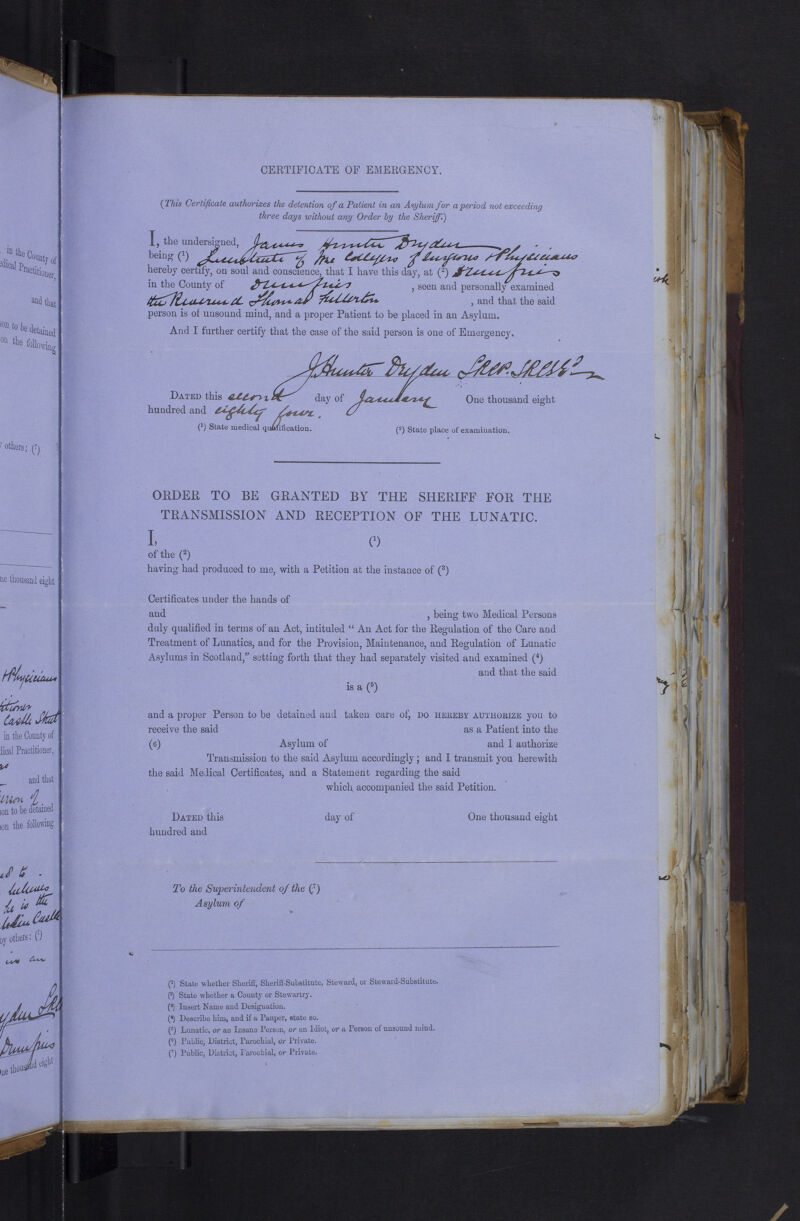 in the County of
dical Practitioner,
and that
son to be detained
on the following
others; (⁷)
ne thousand eight
& Physicians
Castle Street
in the County of
lical Practitioner,
and that
on to be detained
on the following
he is the
by others: (¹)
Dumfries
ne thousand eight
CERTIFICATE OF EMERGENCY.
(This Certificate authorizes the detention of a Patient in an Asylum for a period not exceeding
three days without any Order by the Sheriff.)
I, the undersigned, James Hunter Dryden
being (¹) Licentiate of the Colleges of Surgeons & Physicians
hereby certify, on soul and conscience, that I have this day, at (²) Dumfries
in the County of Dumfries , seen and personally examined
the Reverend Thomas Fullerton , and that the said
person is of unsound mind, and a proper Patient to be placed in an Asylum.
And I further certify that the case of the said person is one of Emergency.
J Hunter Dryden LRCP. LRCSEd
DATED this second day of January One thousand eight
hundred and eighty four.
(¹) State medical qualification. (²) State place of examination.
ORDER TO BE GRANTED BY THE SHERIFF FOR THE
TRANSMISSION AND RECEPTION OF THE LUNATIC.
I, (¹)
of the (²)
having had produced to me, with a Petition at the instance of (³)
Certificates under the hands of
and , being two Medical Persons
duly qualified in terms of an Act, intituled " An Act for the Regulation of the Care and
Treatment of Lunatics, and for the Provision, Maintenance, and Regulation of Lunatic
Asylums in Scotland," setting forth that they had separately visited and examined (⁴)
and that the said
is a (⁵)
and a proper Person to be detained and taken care of, DO HEREBY AUTHORIZE you to
receive the said as a Patient into the
(6) Asylum of and I authorize
Transmission to the said Asylum accordingly; and I transmit you herewith
the said Medical Certificates, and a Statement regarding the said
which accompanied the said Petition.
DATED this day of One thousand eight
hundred and
To the Superintendent of the (⁷)
Asylum of
(¹) State whether Sheriff, Sheriff-Substitute, Steward, or Steward-Substitute.
(²) State whether a County or Stewartry.
(³) Insert Name and Designation.
(⁴) Describe him, and if a Pauper, state so.
(⁵) Lunatic, or an Insane Person, or an Idiot, or a Person of unsound mind.
(⁶) Public, District, Parochial, or Private.
(⁷) Public, District, Parochial, or Private.